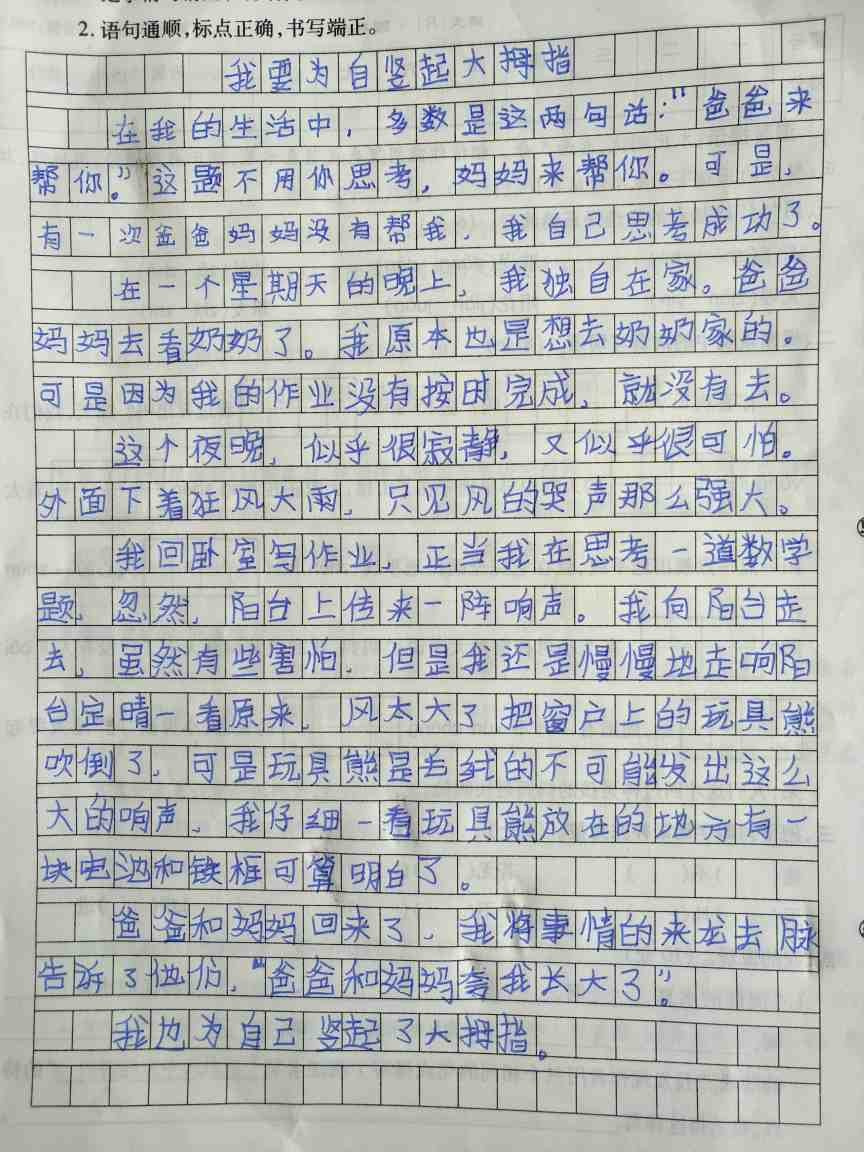 2.语句通顺,标点正确,书写端正。
我要为自竖起大拇指
在我的生活中，多数是这两句话："爸爸来
帮你。"这题不用你思考，妈妈来帮你。可是，
有一次爸爸妈妈没有帮我，我自己思考成功了。
在一个星期天的晚上，我独自在家。爸爸
妈妈去看奶奶了。我原本也是想去奶奶家的。
可是因为我的作业没有按时完成，就没有去。
这个夜晚，似乎很寂静，又似乎很可怕。
外面下着狂风大雨，只见风的哭声那么强大。
我回卧室写作业，正当我在思考一道数学
题，忽然，阳台上传来一阵响声。我向阳台走
去，虽然有些害怕，但是我还是慢慢地走响阳
台定睛 看原来，风太大了把窗户上的玩具熊
吹倒了，可是玩具熊是毛绒的不可能发出这么
大的响声，我仔细一看玩具熊放在的地方有一
块电池和铁框可算明白了。
爸爸和妈妈回来了，我将事情的来龙去脉
告诉了他们，"爸爸和妈妈夸我长大了"。
我也为自己竖起了大拇指。